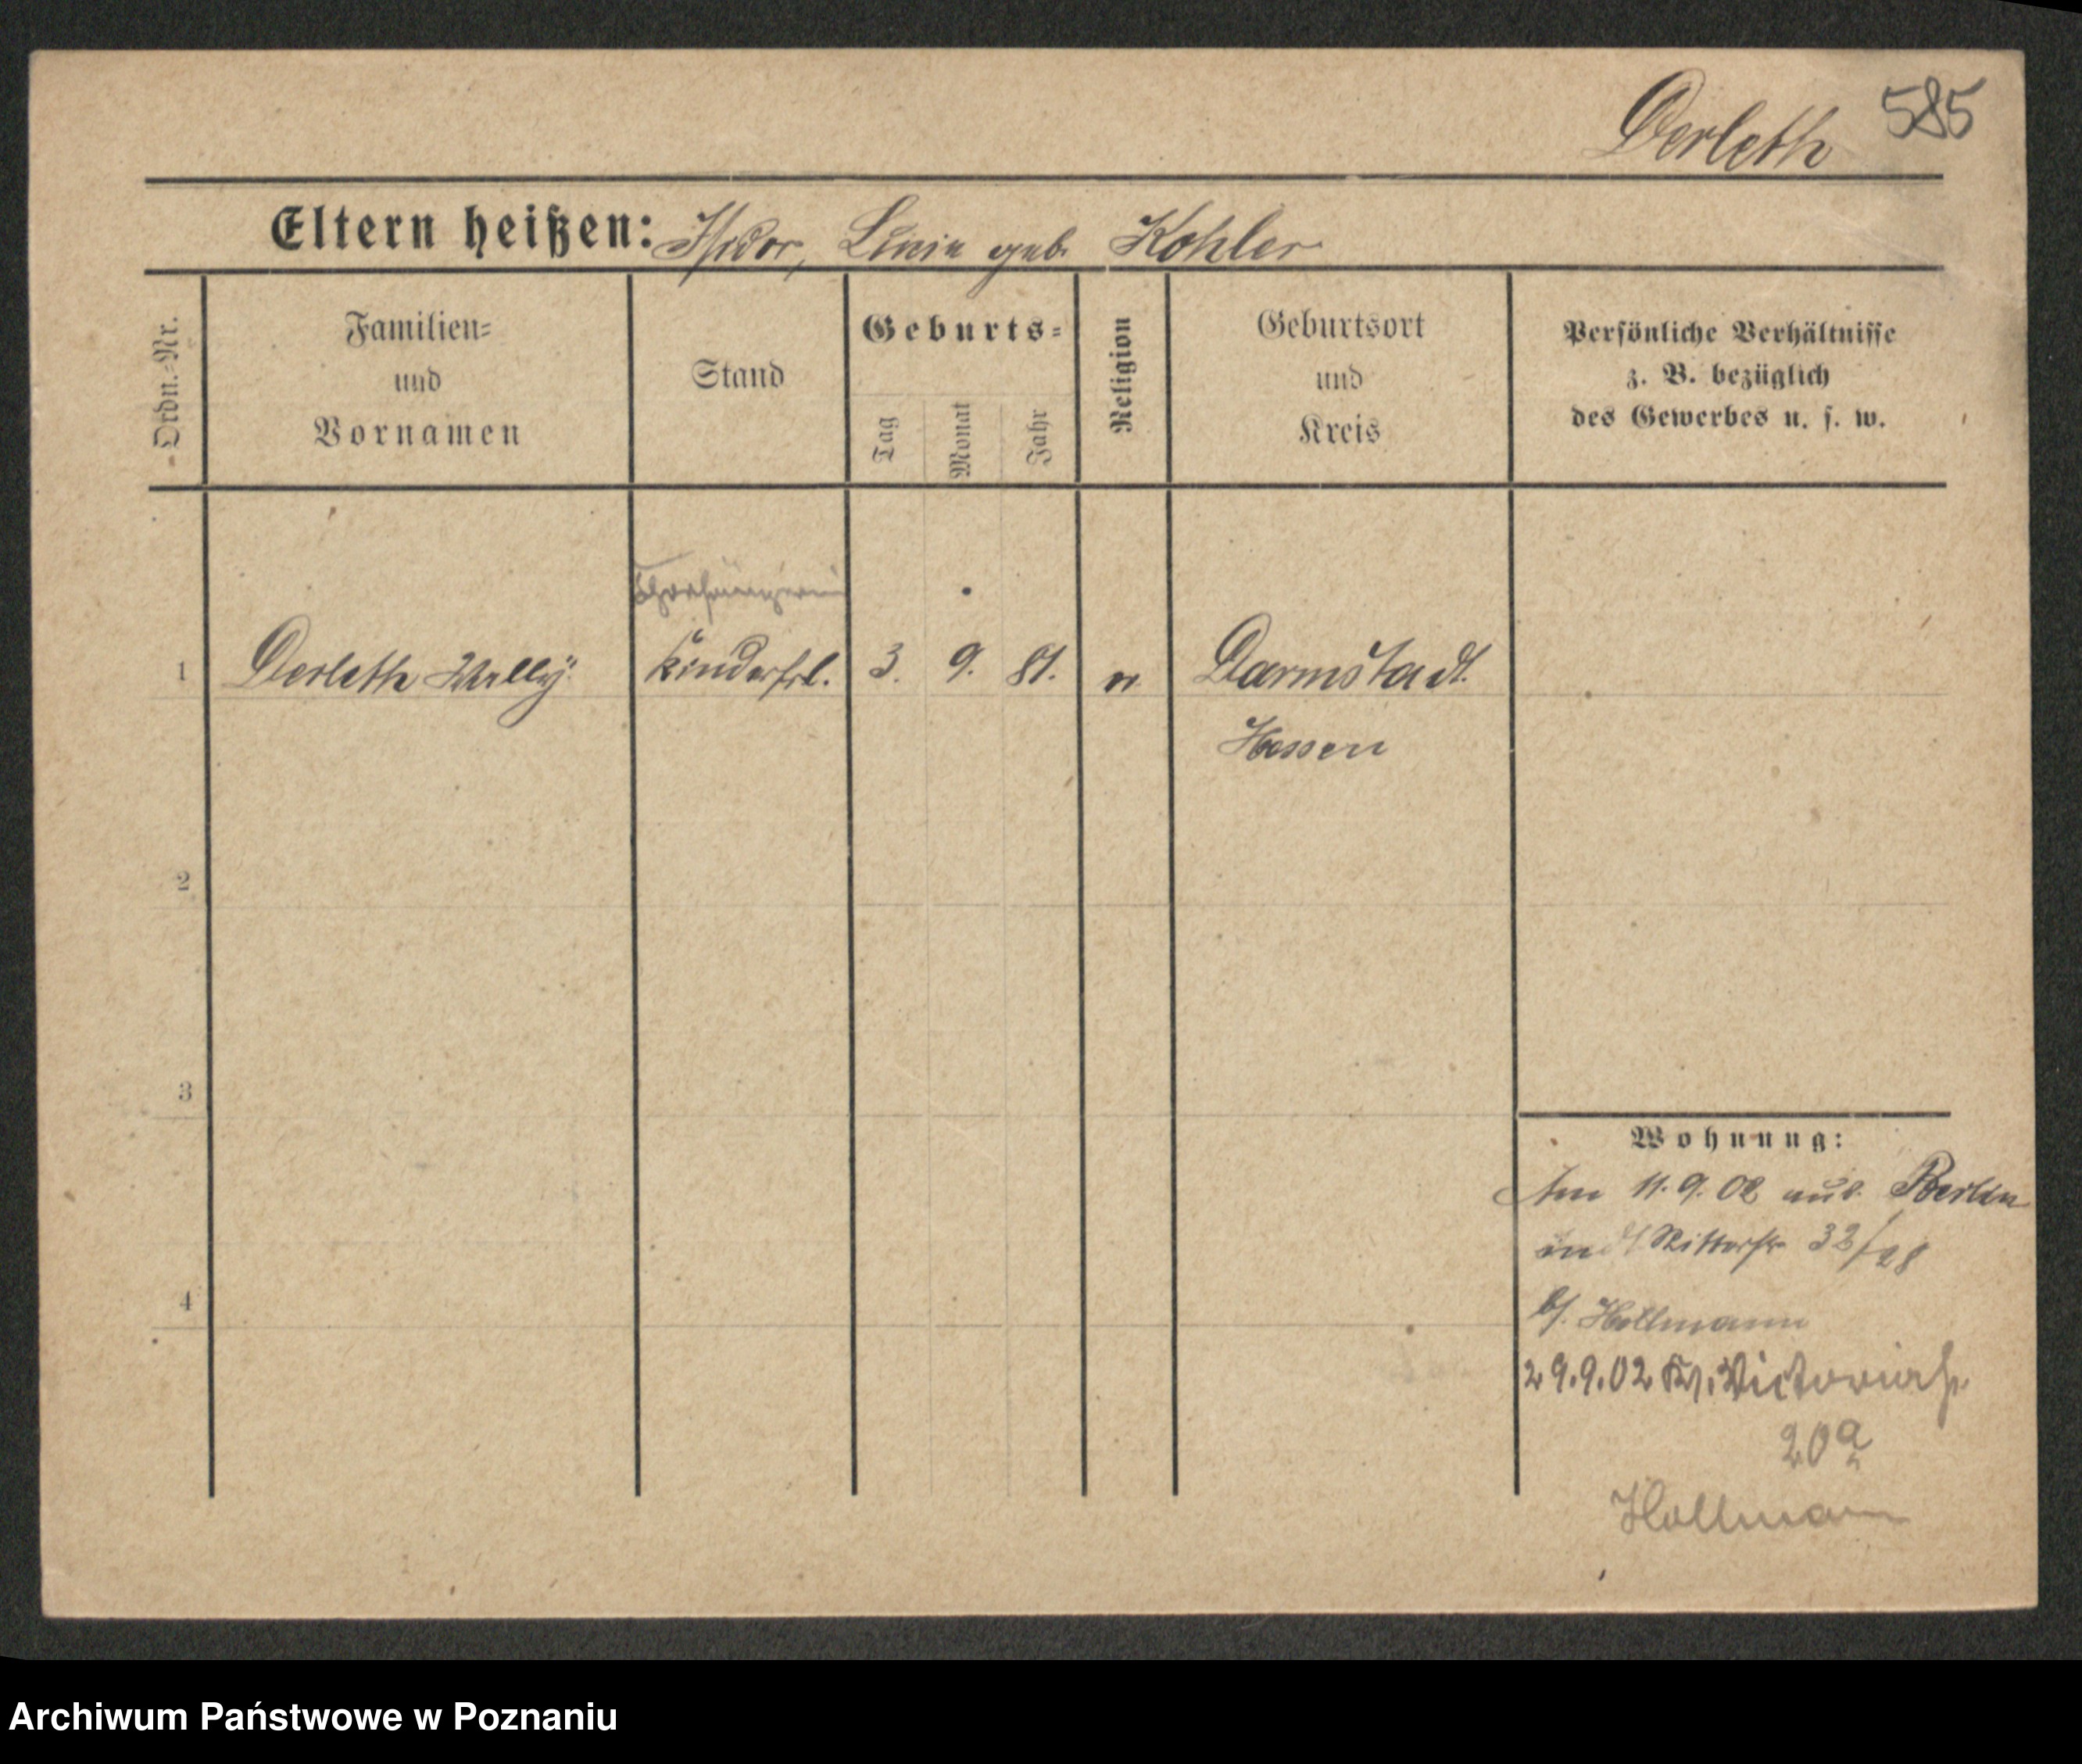 Derleth 585
Eltern heißen: Isidor, Linia geb. Kohler
Ordn.-Nr.
Familien- und Vornamen
Stand
Geburts-
Tag
Monat
Jahr
Religion
Geburtsort und Kreis
Persönliche Verhältnisse z. B. bezüglich des Gewerbes u. s. w.
Chorsängerin
1 Derleth Kinderfrl. 3. 9. 81. Darmstadt
Hessen
2
3
4
Wohnung:
Am 11.9.02 aus Berlin
Ritterstr 32/28
b/. Hollmann
29.9.02 Victoriastr.
20a
Hollmann
Archiwum Państwowe w Poznaniu